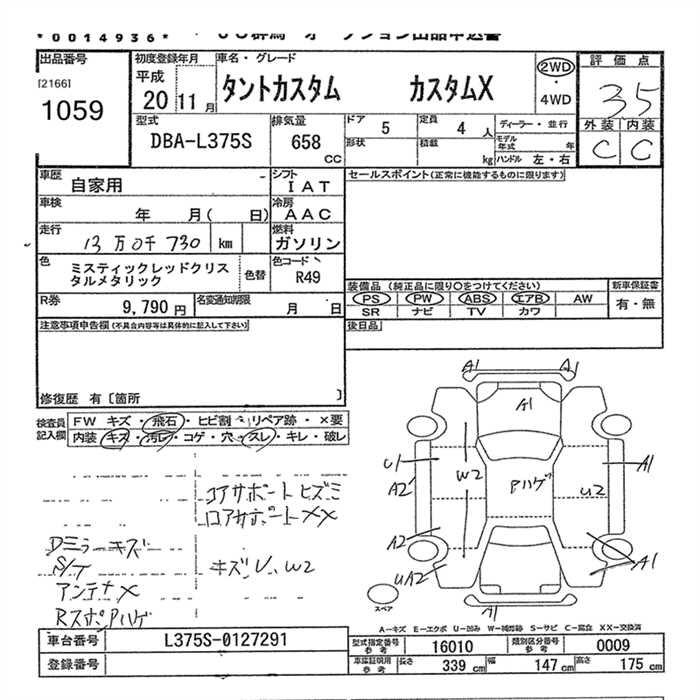 *0014936*
出品番号 初度登録年月 車名・グレード 評価点
[2166] 平成 2WD
1059 20 11月 タントカスタム カスタムX ・ 35
4WD
型式 排気量 ドア 5 定員 4人 ディーラー・並行 外装 内装
DBA-L375S 658 CC 形状 積載 kg モデル年式 年 C C
ハンドル 左・右
車歴 自家用 シフト IAT セールスポイント(正常に機能するものに限ります)
車検 年 月( 日) 冷房 AAC
走行 13万0千730 km 燃料 ガソリン
色 ミスティックレッドクリス 色替 色コード R49
タルメタリック 装備品(純正品に限り○をつけてください) 新車保証書
R券 9,790円 名変通知期限 月 日 PS PW ABS エアB AW 有・無
SR ナビ TV カワ
注意事項申告欄(不具合内容等は具体的に記入して下さい) 後日品
修復歴 有〔箇所 〕
検査員 FW キズ・飛石・ヒビ割・リペア跡・×要
記入欄 内装 キズ・汚レ・コゲ・穴・スレ・キレ・破レ
A1 A1
A1
U1 W2 Aハゲ U2 A1
A2
A2 A1
UA2
A1
スペア
コアサポートヒズミ
ロアサポートXX
Dミラーキズ
S/T キズU、W2
アンテナX
RスポAハゲ
A-キズ E-エクボ U-凹み W-補修跡 S-サビ C-腐食 XX-交換済
車台番号 L375S-0127291 型式指定番号 参考 16010 類別区分番号 参考 0009
登録番号 車庫証明用 参考 長さ 339cm 幅 147cm 高さ 175cm